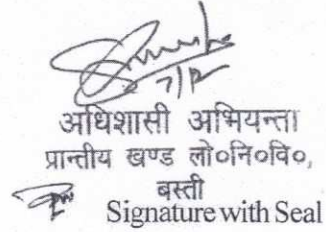 7/12
अधिशासी अभियन्ता
प्रान्तीय खण्ड लो०नि०वि०,
बस्ती
Signature with Seal